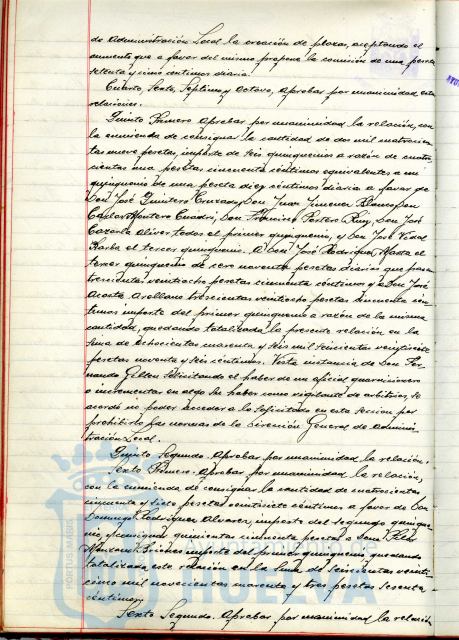 de Administración Local la creación de plazas, aceptando el
aumento que a favor del mismo propone la comisión de una peseta
setenta y cinco centimos diaria.
Cuarto, Sexto, Septimo y Octavo, Aprobar por unanimidad estas
relaciones.
Quinto Primero Aprobar por unanimidad la relación, con
la enmienda de consignar la cantidad de dos mil cuatrocien
tas nueve pesetas, importe de seis quinquenios a razón de cuatro
cientas una pesetas cincuenta centimos equivalentes a un
quinquenio de una peseta diez centimos diaria a favor de
Don José Quintero Cruzado, Don Juan Jimenez Blanco, Don
Carlos Montero Cuadri, Don Francisco Portero Ruiz, Don José
Cazorla Oliver todos el primer quinquenio, y Don José Vidal
Barba el tercer quinquenio. A Don José Rodriguez el
tercer quinquenio de cero noventa pesetas diarias que
trescientas veintiocho pesetas cincuenta centimos y a Don José
Acosta Arellano trescientas veintiocho pesetas cincuenta cen
timos importe del primer quinquenio a razón de la misma
cantidad, quedando totalizada la presente relación en la
suma de Ochocientas cuarenta y seis mil seiscientas veintisiete
pesetas noventa y seis centimos. Vista instancia de Don Fer
nando solicitando el haber de un oficial
o incrementar en algo su haber como vigilante de arbitrios, se
acordó no poder acceder a lo solicitado en esta sección por
prohibirlo las normas de la Dirección General de Adminis
tración Local.
Quinto Segundo. Aprobar por unanimidad la relación.
Sexto Primero. Aprobar por unanimidad la relación,
con la enmienda de consignar la cantidad de cuatrocientas
cincuenta y siete pesetas veintisiete centimos a favor de Don
Domingo Rodriguez Alvarez, importe del segundo quinque
nio, y consignar quinientas pesetas a Don
importe del primer quinquenio, quedando
totalizada esta relación en la suma de seiscientas veinti
cinco mil novecientas cuarenta y tres pesetas sesenta
centimos.
Sexto Segundo. Aprobar por unanimidad la relación
Ayuntamiento de
HUELVA
PORTUS MARIS